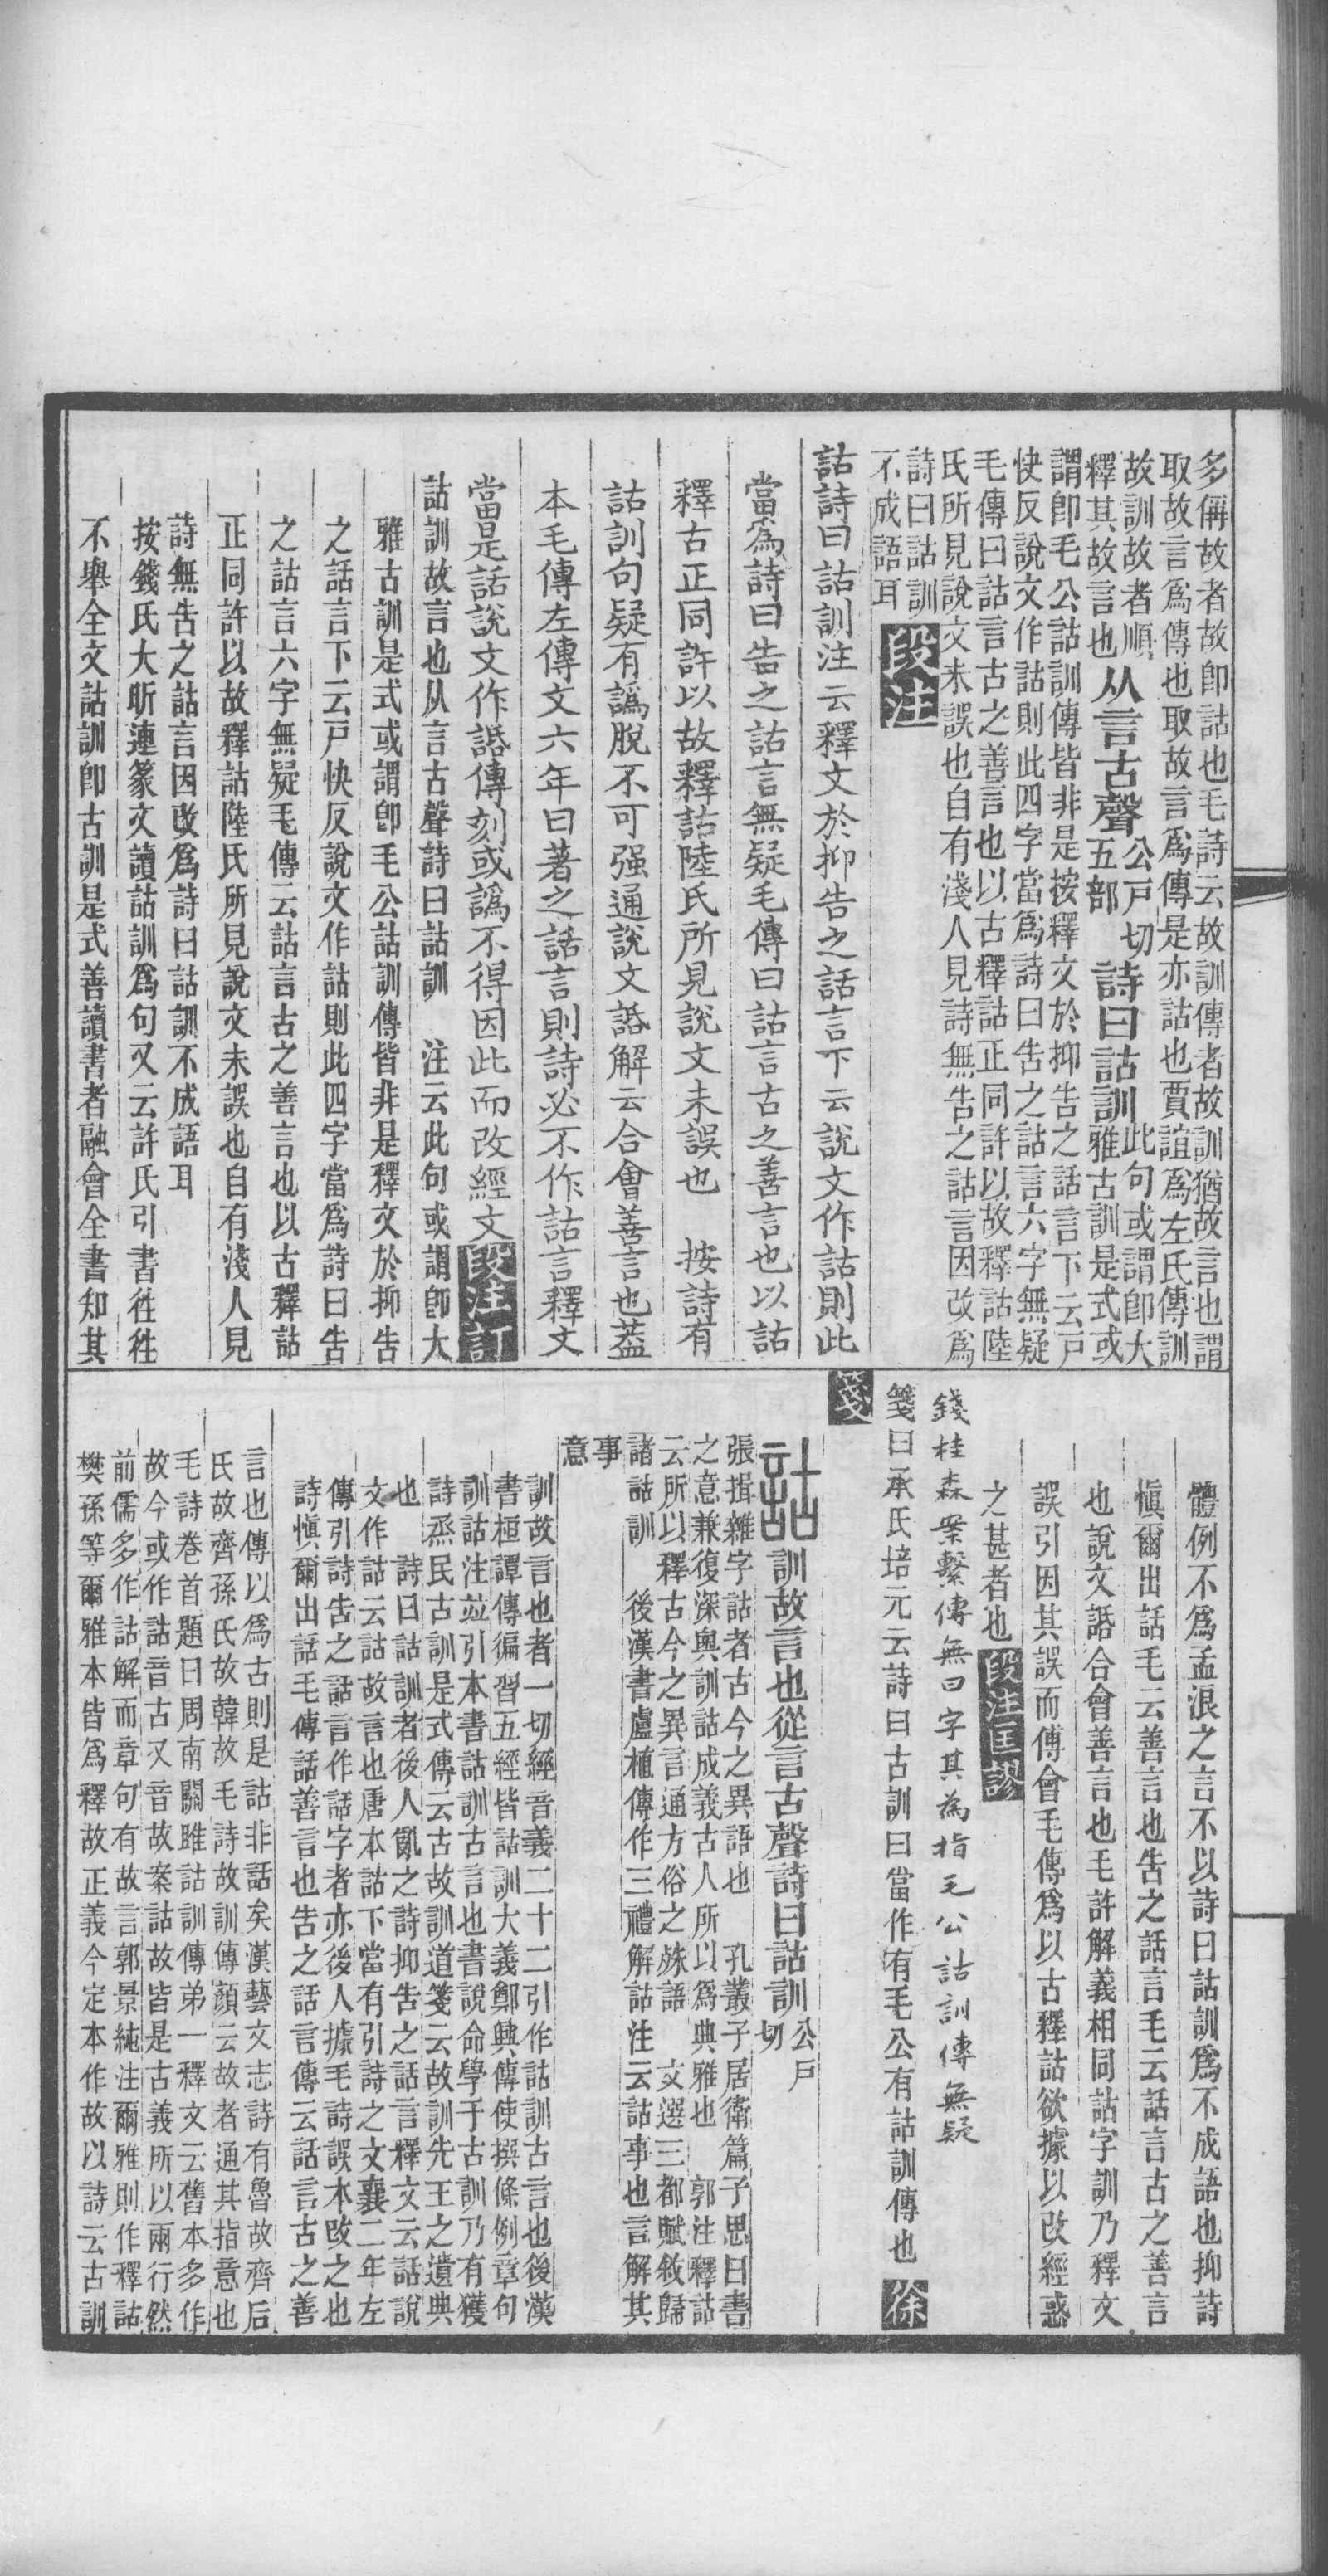 多偁故者故卽詁也毛詩云故訓傳者故訓猶故言也謂
取故言爲傳也取故言爲傳是亦詁也賈誼爲左氏傳訓
故訓故者順
釋其故言也
从言古聲
公戸切
五部
詩曰詁訓
此句或謂卽大
雅古訓是式或
謂卽毛公詁訓傳皆非是按釋文於抑告之話言下云戸
快反說文作詁則此四字當爲詩曰告之詁言六字無疑
毛傳曰詁言古之善言也以古釋詁正同許以故釋詁陸
氏所見說文未誤也自有淺人見詩無告之詁言因改爲
詩曰詁訓
不成語耳
段注
詁詩曰詁訓注云釋文於抑告之話言下云說文作詁則此
當爲詩曰告之詁言無疑毛傳曰詁言古之善言也以詁
釋古正同許以故釋詁陸氏所見說文未誤也　按詩有
詁訓句疑有譌脫不可强通說文話解云合會善言也葢
本毛傳左傳文六年曰著之話言則詩必不作詁言釋文
當是話說文作䛡傳刻或譌不得因此而改經文
段注訂
詁訓故言也从言古聲詩曰詁訓　注云此句或謂卽大
雅古訓是式或謂卽毛公詁訓傳皆非是釋文於抑告
之話言下云戸快反說文作詁則此四字當爲詩曰告
之詁言六字無疑毛傳云詁言古之善言也以古釋詁
正同許以故釋詁陸氏所見說文未誤也自有淺人見
詩無告之詁言因改爲詩曰詁訓不成語耳
按錢氏大昕連篆文讀詁訓爲句又云許氏引書往往
不舉全文詁訓卽古訓是式善讀書者融會全書知其
體例不爲孟浪之言不以詩曰詁訓爲不成語也抑詩
愼爾出話毛云善言也告之話言毛云話言古之善言
也說文話合會善言也毛許解義相同詁字訓乃釋文
誤引因其誤而傅會毛傳爲以古釋詁欲據以改經惑
之甚者也
段注匡謬
錢桂森案繫傳無曰字其為指毛公詁訓傳無疑
箋曰承氏培元云詩曰古訓曰當作有毛公有詁訓傳也
徐
箋
詁
訓故言也從言古聲詩曰詁訓
公戸
切
張揖雜字詁者古今之異語也　孔叢子居衛篇子思曰書
之意兼復深奧訓詁成義古人所以爲典雅也　郭注釋詁
云所以釋古今之異言通方俗之殊語　文選三都賦敘歸
諸詁訓　後漢書盧植傳作三禮解詁注云詁事也言解其
事
意
訓故言也者一切經音義二十二引作詁訓古言也後漢
書桓譚傳徧習五經皆詁訓大義鄭興傳使撰條例章句
訓詁注竝引本書詁訓古言也書說命學于古訓乃有獲
詩烝民古訓是式傳云古故訓道箋云故訓先王之遺典
也　詩曰詁訓者後人亂之詩抑告之話言釋文云話說
文作詁云詁故言也唐本詁下當有引詩之文襄二年左
傳引詩告之話言作話字者亦後人據毛詩誤本改之也
詩愼爾出話毛傳話善言也告之話言傳云話言古之善
言也傳以爲古則是詁非話矣漢藝文志詩有魯故齊后
氏故齊孫氏故韓故毛詩故訓傳顏云故者通其指意也
毛詩卷首題曰周南關雎詁訓傳弟一釋文云舊本多作
故今或作詁音古又音故案詁故皆是古義所以兩行然
前儒多作詁解而章句有故言郭景純注爾雅則作釋詁
樊孫等爾雅本皆爲釋故正義今定本作故以詩云古訓